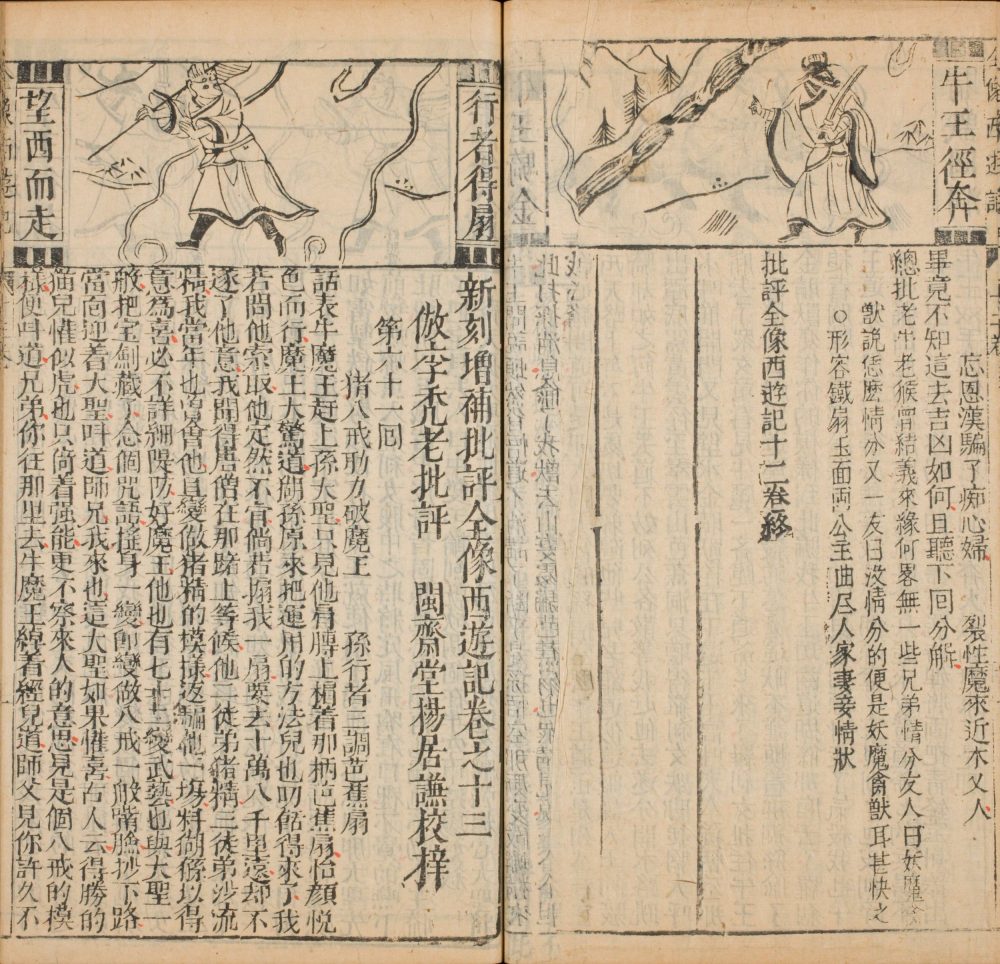 牛王徑奔
忘恩漢騙了痴心婦 裂性魔來近木叉人
畢竟不知這去吉凶如何且聽下囘分解
總批老牛老猴曾結義來緣何畧無一些兄弟情分友人曰妖魔禽
獸說恁麽情分又一友曰没情分的便是妖魔禽獸耳甚快之
○形容鐵扇玉面両公主曲尽人家妻妾情狀
批評全像西遊記十二卷終
行者得扇
望西而走
新刻增補批評全像西遊記卷之十三
倣李秃老批評 閩齋堂楊居謙校梓
第六十一囘
猪八戒助力破魔王 孫行者三調芭蕉扇
話表牛魔王赶上孫大聖只見他肩膊上掮着那柄芭蕉扇怡顔悦
色而行魔王大驚道猢孫原來把運用的方法兒也叨餂得來了我
若問他索取他定然不肯倘若搧我一扇要去十萬八千里遠却不
遂了他意我聞得唐僧在那路上等候他二徒弟猪精三徒弟沙流
精我當年也曾會他且變做猪精的模樣返騙他一塲料猢猻以得
意爲喜必不詳細隄防好魔王他也有七十二變武藝也與大聖一
般把宝劍藏了念個咒語摇身一變卽變做八戒一般嘴臉抄下路
當面迎着大聖呌道師兄我來也這大聖如果懽喜古人云得勝的
猫兒懽似虎也只倚着强能更不察來人的意思見是個八戒的模
樣便呌道兄弟你徃那里去牛魔王綽着經兒道師父見你許久不